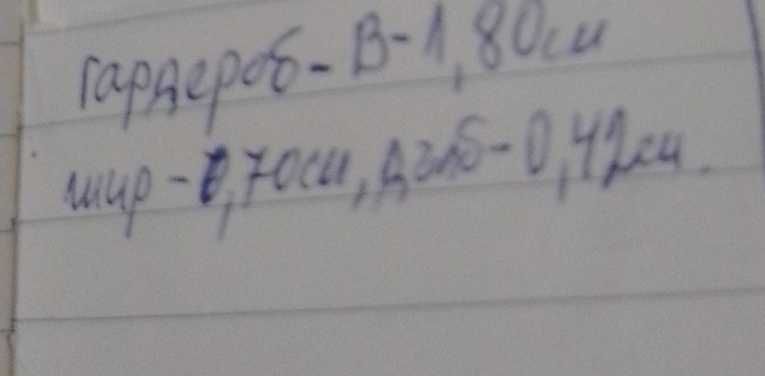 гардероб - В - 1,80см
шир - 0,70см, дълб - 0,42см.